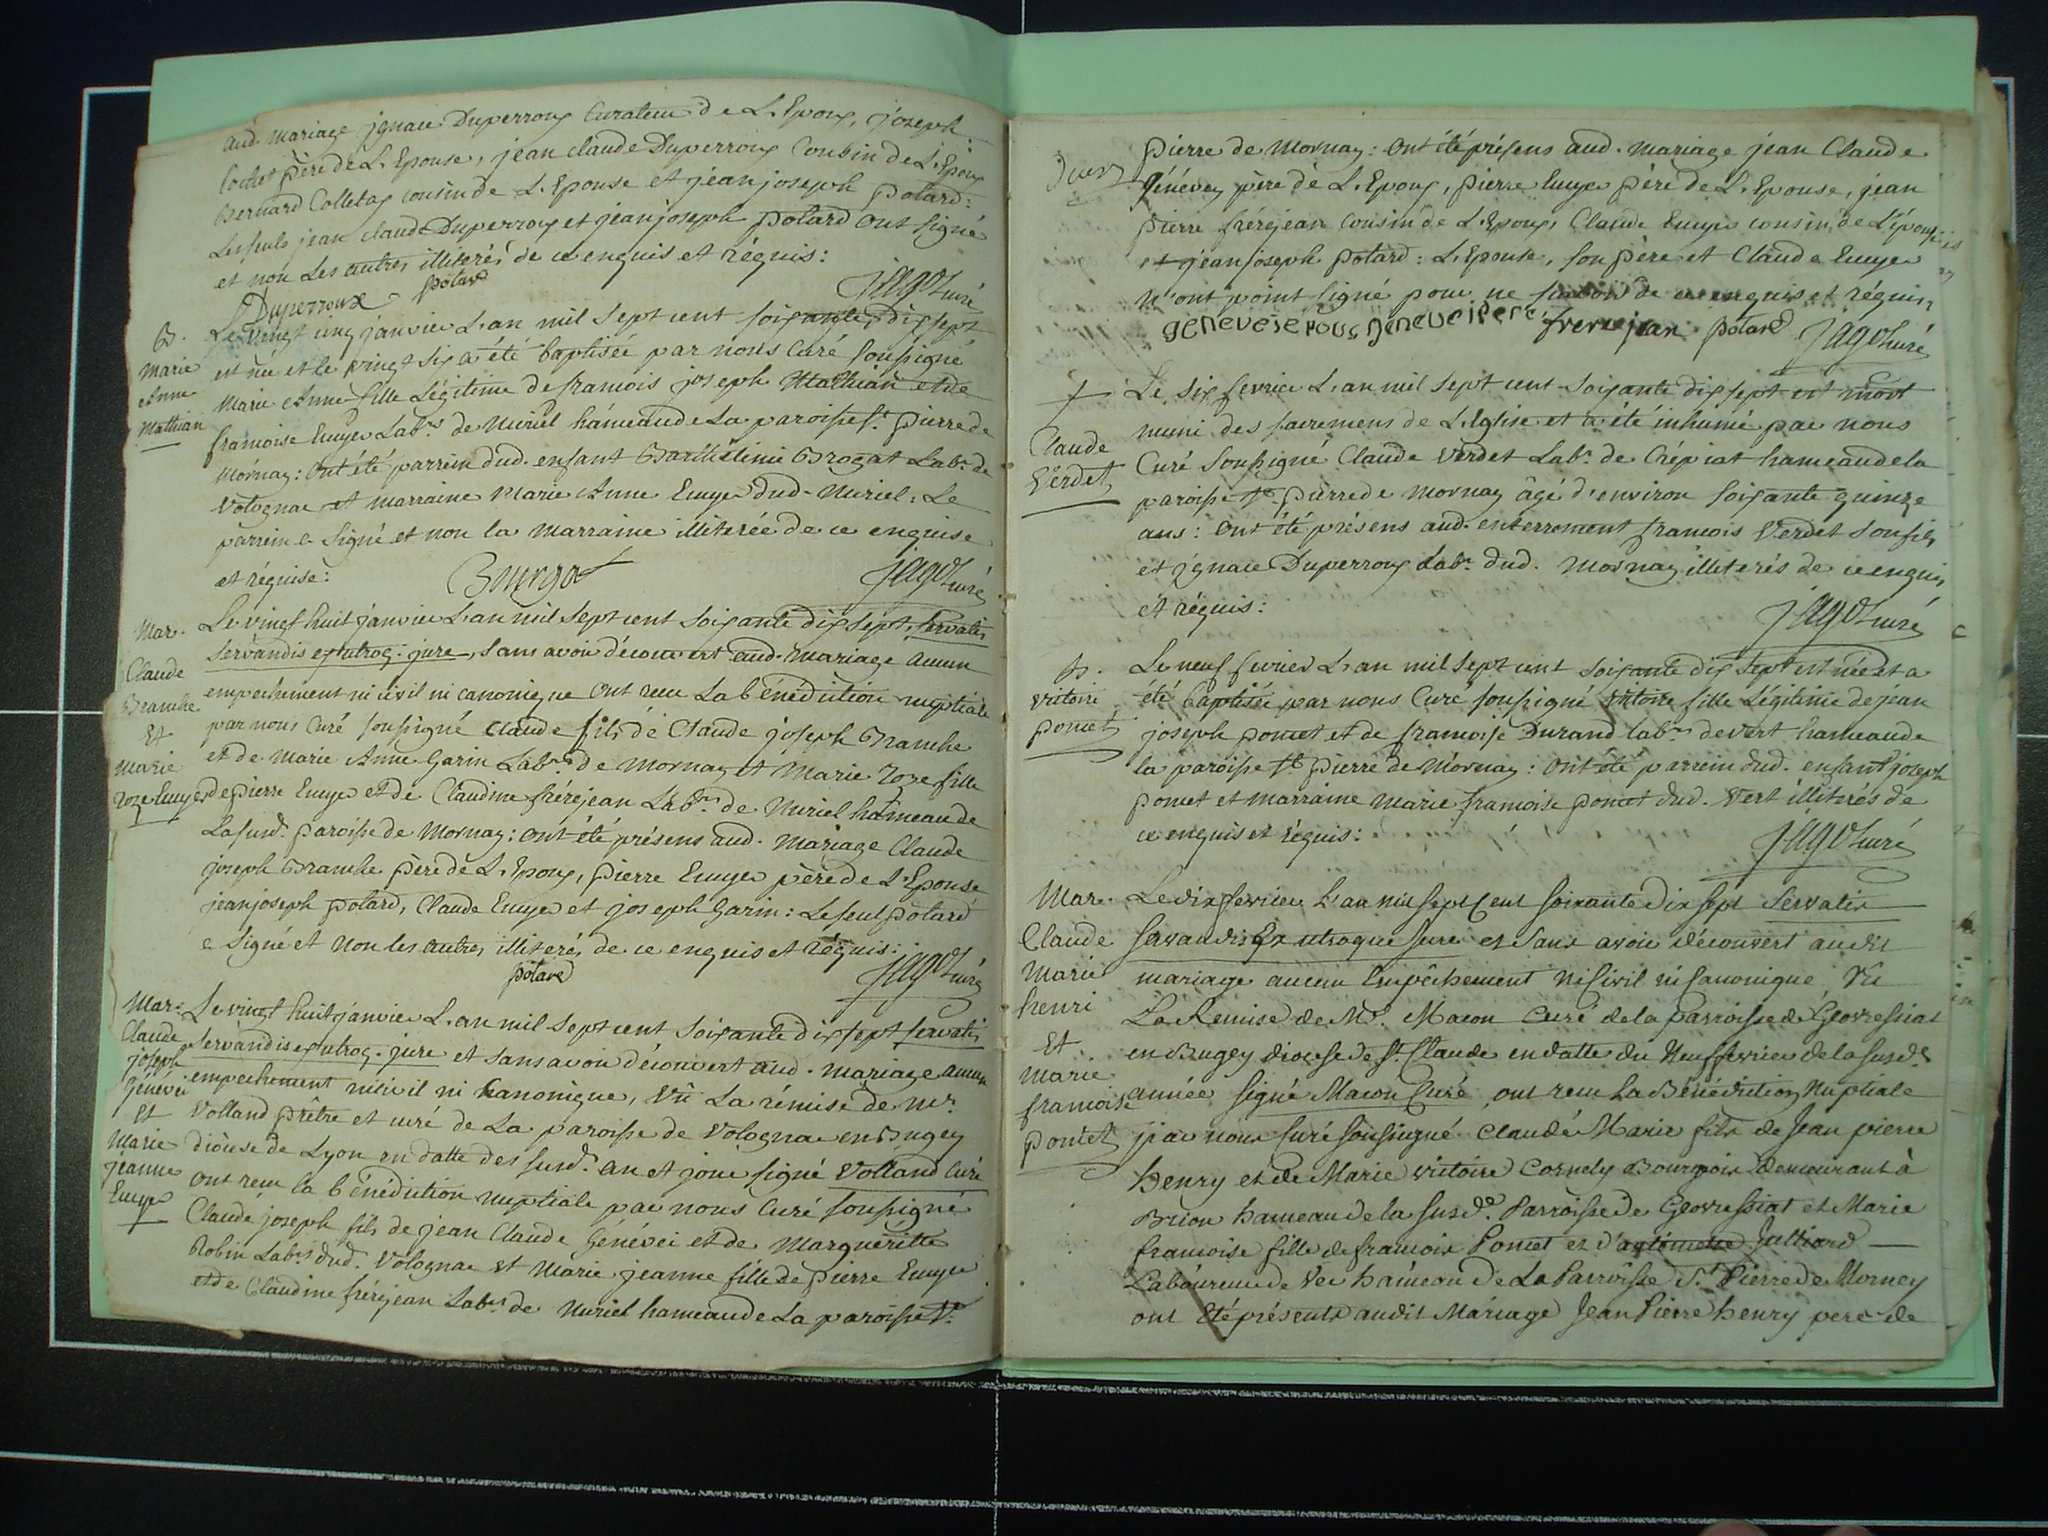 aud. mariage jgnace Duperroux Curateur de L'Epoux, joseph
Cochet père de L'Epouse, jean claude Duperroux Cousin de L'Epoux
Bernard Colletaz cousin de L'Epouse et jean joseph polard:
Les seuls jean claude Duperroux et jean joseph polard ont signé
et non Les autres illiterés de ce enquis et réquis:
Duperroux polard jagot curé
B.
Marie
Anne
Mathian
Le vingt cinq janvier L'an mil sept cent soixante dix sept
est née et le vingt six a été baptisée par nous Curé soussigné
Marie Anne fille Légitime de francois joseph Mathian et de
francoise Emyer Lab.rs de Muriel hámeau de La paroisse st. pierre de
Mornay: ont été parrein dud. enfant Barthélémie Brogat Lab.r de
Volognac et marraine Marie Anne Emyer dud. Muriel: Le
parrein a signé et non la Marraine illiterée de ce enquise
et réquise: Bourgat jagot curé
Mar.
Claude
Branche
Et
Marie
roze Emyer
Le vingt huit janvier L'an mil sept cent soixante dix sept, servatis
servandis ex utroq. jure, sans avoir découvert aud. mariage aucun
empechement ni civil ni canonique ont recu La bénédiction nuptiale
par nous Curé soussigné claude fils de Claude joseph Branche
et de Marie Anne Garin Lab.rs de Mornay et Marie roze fille
de pierre Emyer et de Claudine fréréjean Lab.rs de Muriel hameau de
La susd. paroisse de Mornay: ont été présens aud. Mariage Claude
joseph Branche père de L'Epoux, pierre Emyer père de L'Epouse
jean joseph polard, Claude Emyer et joseph Garin: Le seul polard
a signé et non les autres illiterés de ce enquis et réquis:
polard jagot curé
Mar.
Claude
joseph
Génévei
Et
Marie
jeanne
Emyer
Le vingt huit janvier L'an mil sept cent soixante dix sept servatis
servandis ex utroq. jure et sans avoir découvert aud. mariage aucun
empechement ni civil ni canonique, vû La rémise de mr.
Volland prêtre et curé de La paroisse de Volognac en Bugey
diocèse de Lyon en datte des susd. an et jour signé Volland Curé
ont recu la bénédiction nuptiale par nous Curé soussigné
Claude joseph fils de jean Claude Génévei et de Marguéritte
Robin Lab.rs dud. Volognac et Marie jeanne fille de pierre Emyer
et de Claudine fréréjean Lab.rs de Muriel hameau de La paroisse st.
pierre de Mornay: ont été présens aud. mariage jean Claude
Génévey père de L'Epoux, pierre Emyer père de L'Epouse, jean
pierre fréréjean cousin de L'Epoux, Claude Emyer cousin de L'épouse
et jean joseph polard: L'Epouse, son père et Claude Emyer
n'ont point signé pour ne savoir de ce enquis et réquis,
geneveiepous geneveipere frerejean polard jagot curé
†
Claude
Verdet
Le six fevrier L'an mil sept cent soixante dix sept est mort
muni des sacremens de L'Eglise et a été inhumé par nous
Curé soussigné Claude Verdet Lab.r de Crépiat hameau de la
paroisse st. pierre de Mornay âgé d'environ soixante quinze
ans: ont été présens aud. enterrement francois Verdet son fils,
et jgnace Duperroux Lab.r dud. Mornay illiterés de ce enquis
et réquis: jagot curé
B.
Victoire
pomet
Le neuf fevrier L'an mil sept cent soixante dix sept est née et a
été baptisée par nous Curé soussigné Victoire fille Légitime de jean
joseph pomet et de francoise Durand lab.rs de vert hameau de
la paroisse st. pierre de Mornay: ont été parrein dud. enfant joseph
pomet et marraine Marie francoise pomet dud. Vert illiterés de
ce enquis et réquis: jagot curé
Mar.
Claude
Marie
henri
Et
Marie
francoise
pomet
Le dix fevrier L'an mil sept Cent soixante dix sept Servatis
servandis Ex utroque jure et sans avoir découvert audit
mariage aucun Empêchement ni Civil ni Canonique, Vu
La Remise de Mr. Macon Curé de la parroisse de Geovressiat
en Bugey diocese de St. Claude en datte du Neuf fevrier de la susd.e
année signé Macon Curé, ont recu La Bénédiction Nuptiale
par nous Curé soussigné Claude Marie fils de Jean pierre
henry et de Marie victoire Cornely Bourgois demeurant à
Brion hameau de la susd.e Parroisse de Geovressiat et Marie
francoise fille de francois Pomet et d'antoinette Julliard
Laboureur de Ver hameau de La Parroisse St. Pierre de Mornay
ont Eté présents audit Mariage Jean Pierre henry pere de